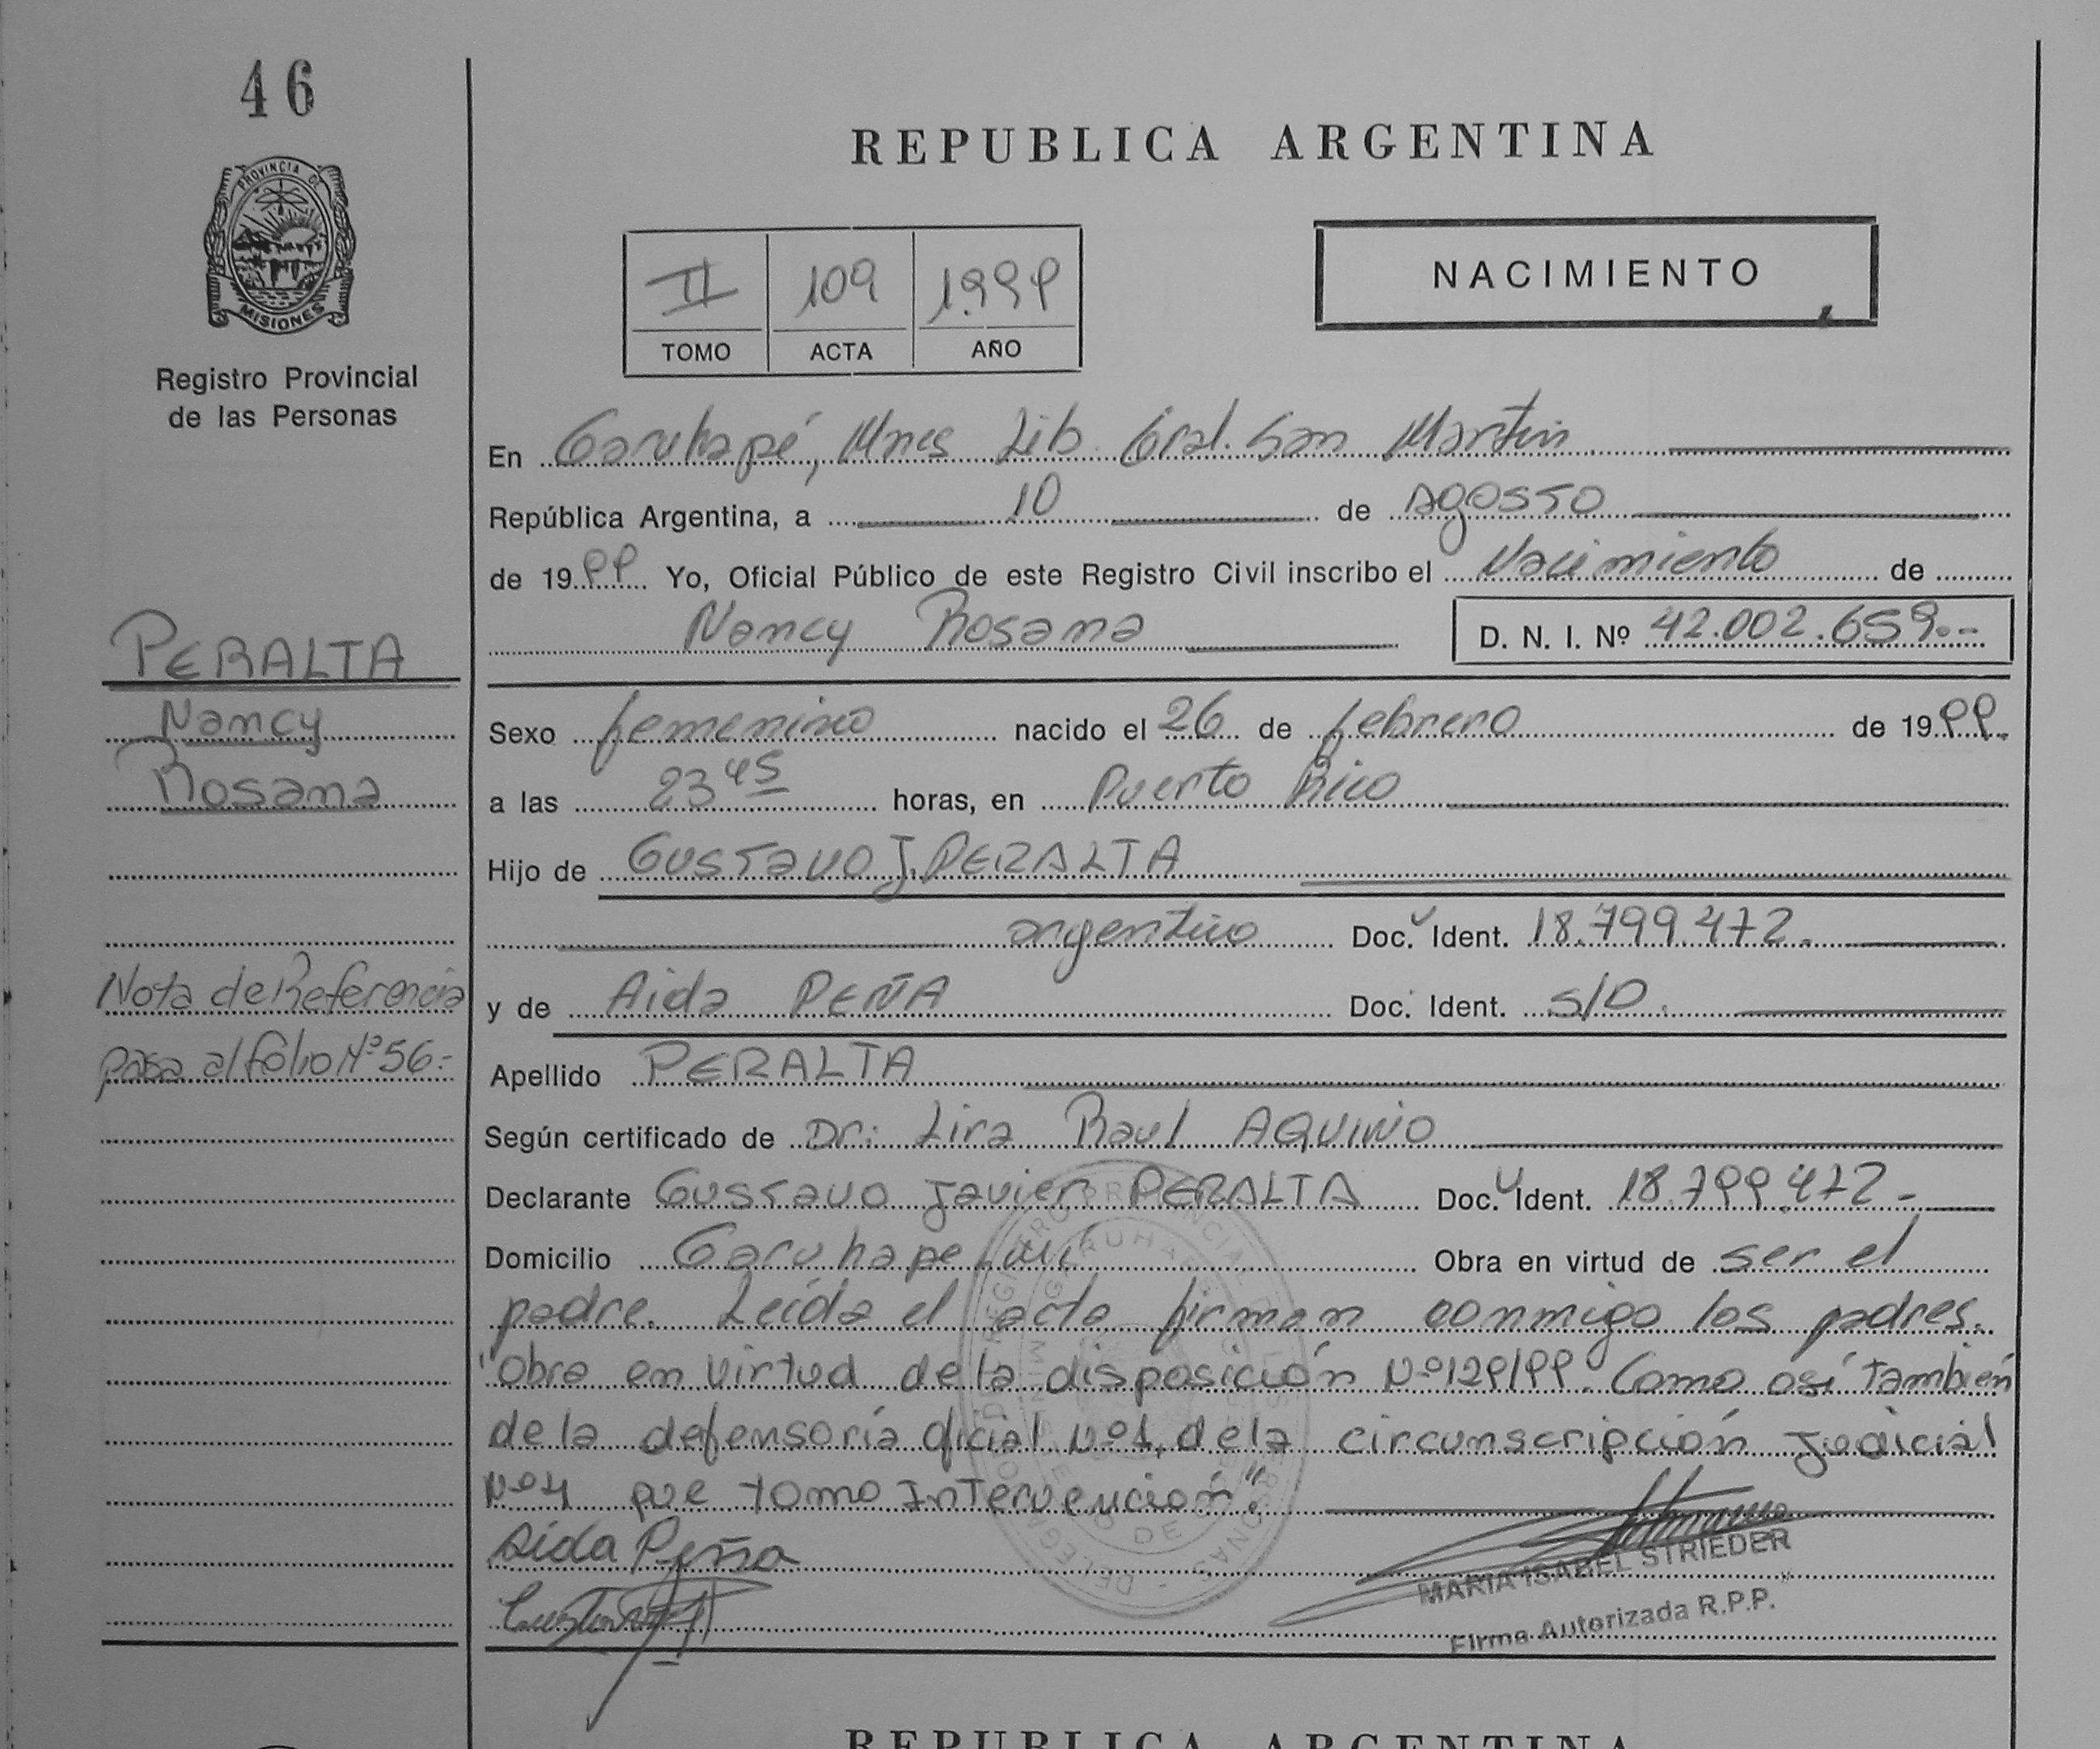 46
PROVINCIA DE
MISIONES
Registro Provincial
de las Personas
PERALTA
Nancy
Rosana
Nota de Referencia
pasa al folio Nº 56=
REPUBLICA ARGENTINA
II 109 1.999
TOMO ACTA AÑO
NACIMIENTO
En Garuhapé, Mnes Lib. Gral. San Martin
República Argentina, a 10 de agosto
de 1999 Yo, Oficial Público de este Registro Civil inscribo el Nacimiento de
Nancy Rosana D. N. I. Nº 42.002.659.-
Sexo femenino nacido el 26 de febrero de 1999.
a las 23 45 horas, en Puerto Rico
Hijo de Gustavo J. PERALTA
argentino Doc. Ident. 18.799.472.
y de Aida PEÑA Doc. Ident. S/D.
Apellido PERALTA
Según certificado de Dr: Lira Raul AQUINO
Declarante Gustavo Javier PERALTA Doc. Ident. 18.799.472-
Domicilio Garuhape Obra en virtud de ser el
padre. Leída el acta firman conmigo los padres.
"Obra en virtud de la disposición Nº 129/99. Como así también
de la defensoría oficial Nº 1, de la circunscripción Judicial
Nº 4 que tomo Intervención".
Aida Peña
MARIA ISABEL STRIEDER
Firma Autorizada R.P.P.
REPUBLICA ARGENTINA